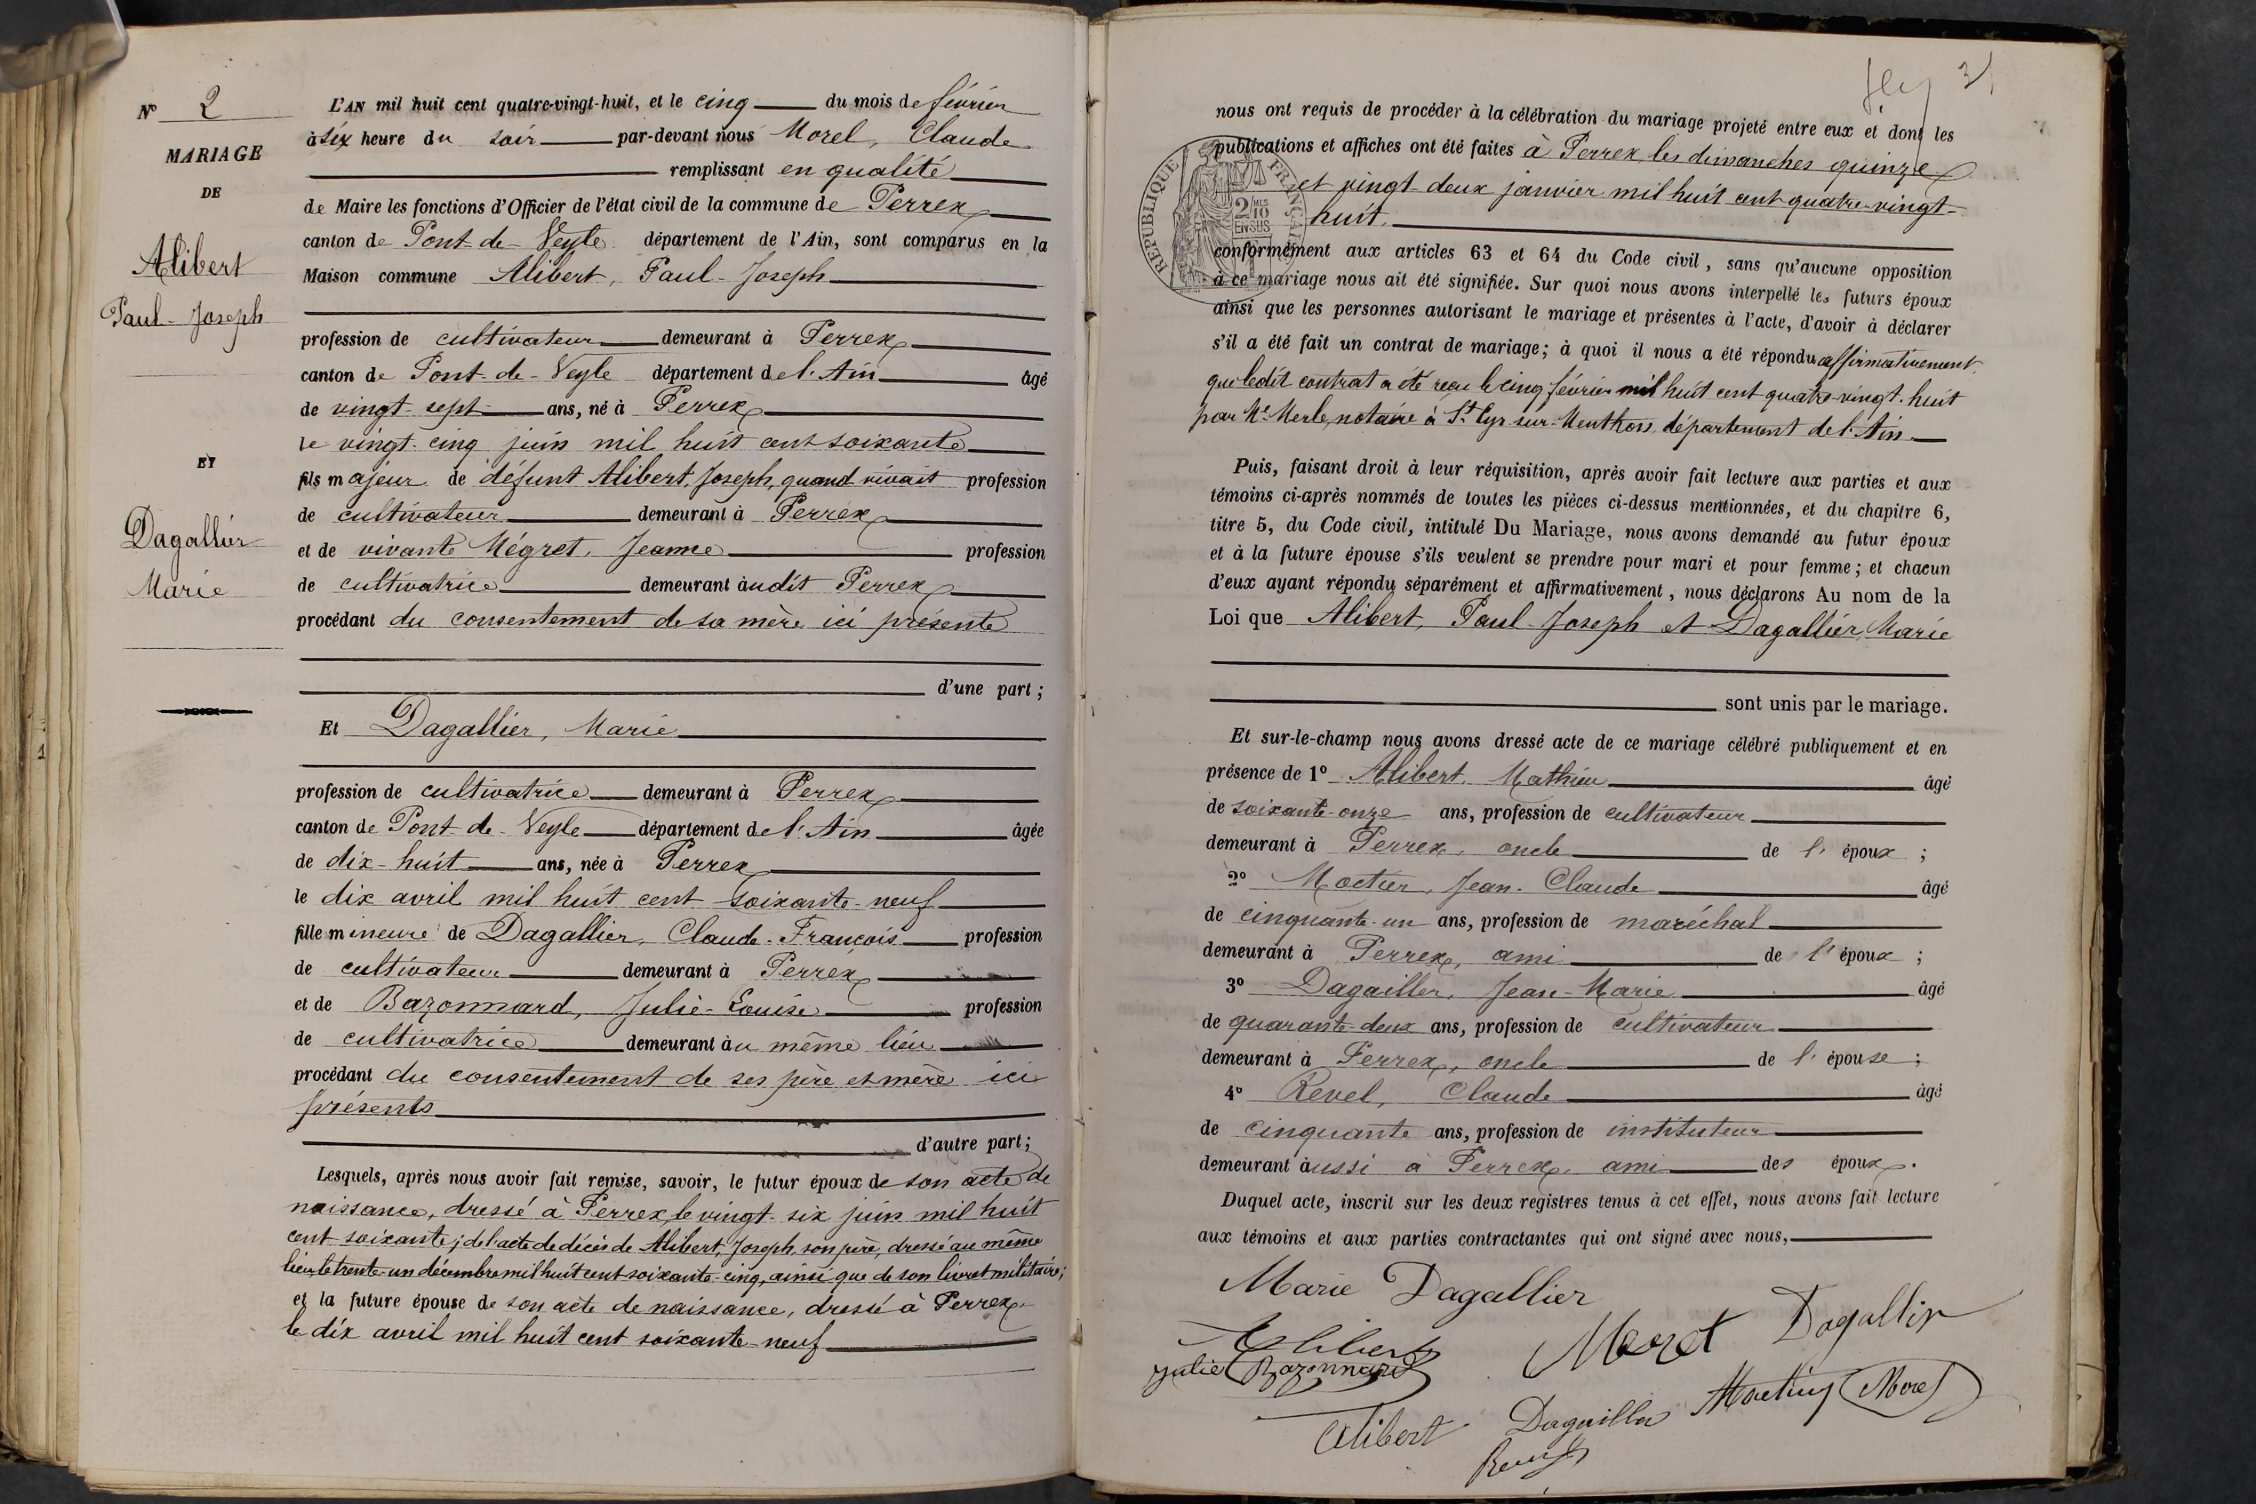 N° 2
MARIAGE
DE
Alibert
Paul-Joseph
ET
Dagallier
Marie
L'AN mil huit cent quatre-vingt-huit, et le cinq du mois de février
à six heure du soir par-devant nous Morel, Claude
remplissant en qualité
de Maire les fonctions d'Officier de l'état civil de la commune de Perrex
canton de Pont-de-Veyle département de l'Ain, sont comparus en la
Maison commune Alibert, Paul-Joseph
profession de cultivateur demeurant à Perrex
canton de Pont-de-Veyle département de l'Ain âgé
de vingt-sept ans, né à Perrex
le vingt-cinq juin mil huit cent soixante
fils majeur de défunt Alibert, Joseph, quand vivait profession
de cultivateur demeurant à Perrex
et de vivante Mégret, Jeanne profession
de cultivatrice demeurant audit Perrex
procédant du consentement de sa mère ici présente
d'une part ;
Et Dagallier, Marie
profession de cultivatrice demeurant à Perrex
canton de Pont-de-Veyle département de l'Ain âgée
de dix-huit ans, née à Perrex
le dix avril mil huit cent soixante-neuf
fille mineure de Dagallier, Claude-François profession
de cultivateur demeurant à Perrex
et de Bazonnard, Julie-Louise profession
de cultivatrice demeurant au même lieu
procédant du consentement de ses père et mère ici
présents
d'autre part ;
Lesquels, après nous avoir fait remise, savoir, le futur époux de son acte de
naissance, dressé à Perrex, le vingt-six juin mil huit
cent soixante ; de l'acte de décès de Alibert, Joseph, son père, dressé au même
lieu le trente-un décembre mil huit cent soixante-cinq, ainsi que de son livret militaire ;
et la future épouse de son acte de naissance, dressé à Perrex
le dix avril mil huit cent soixante-neuf
3
nous ont requis de procéder à la célébration du mariage projeté entre eux et dont les
publications et affiches ont été faites à Perrex, les dimanches quinze
et vingt-deux janvier mil huit cent quatre-vingt-
huit.
RÉPUBLIQUE FRANÇAISE
2 MES 10 EN SUS
conformément aux articles 63 et 64 du Code civil, sans qu'aucune opposition
à ce mariage nous ait été signifiée. Sur quoi nous avons interpellé les futurs époux
ainsi que les personnes autorisant le mariage et présentes à l'acte, d'avoir à déclarer
s'il a été fait un contrat de mariage ; à quoi il nous a été répondu affirmativement
que ledit contrat a été reçu le cinq février mil huit cent quatre-vingt-huit
par Me Merle, notaire à St Cyr-sur-Menthon, département de l'Ain
Puis, faisant droit à leur réquisition, après avoir fait lecture aux parties et aux
témoins ci-après nommés de toutes les pièces ci-dessus mentionnées, et du chapitre 6,
titre 5, du Code civil, intitulé Du Mariage, nous avons demandé au futur époux
et à la future épouse s'ils veulent se prendre pour mari et pour femme ; et chacun
d'eux ayant répondu séparément et affirmativement, nous déclarons Au nom de la
Loi que Alibert, Paul-Joseph et Dagallier, Marie
sont unis par le mariage.
Et sur-le-champ nous avons dressé acte de ce mariage célébré publiquement et en
présence de 1° Alibert, Mathieu âgé
de soixante-onze ans, profession de cultivateur
demeurant à Perrex, oncle de l'époux ;
2° Moctier, Jean-Claude âgé
de cinquante-un ans, profession de maréchal
demeurant à Perrex, ami de l'époux ;
3° Dagailler, Jean-Marie âgé
de quarante-deux ans, profession de cultivateur
demeurant à Perrex, oncle de l'épouse ;
4° Revel, Claude âgé
de cinquante ans, profession de instituteur
demeurant aussi à Perrex, ami des époux.
Duquel acte, inscrit sur les deux registres tenus à cet effet, nous avons fait lecture
aux témoins et aux parties contractantes qui ont signé avec nous,
Marie Dagallier
Alibert Dagallier
Julie Bazonnard
Morel
Alibert Dagailler